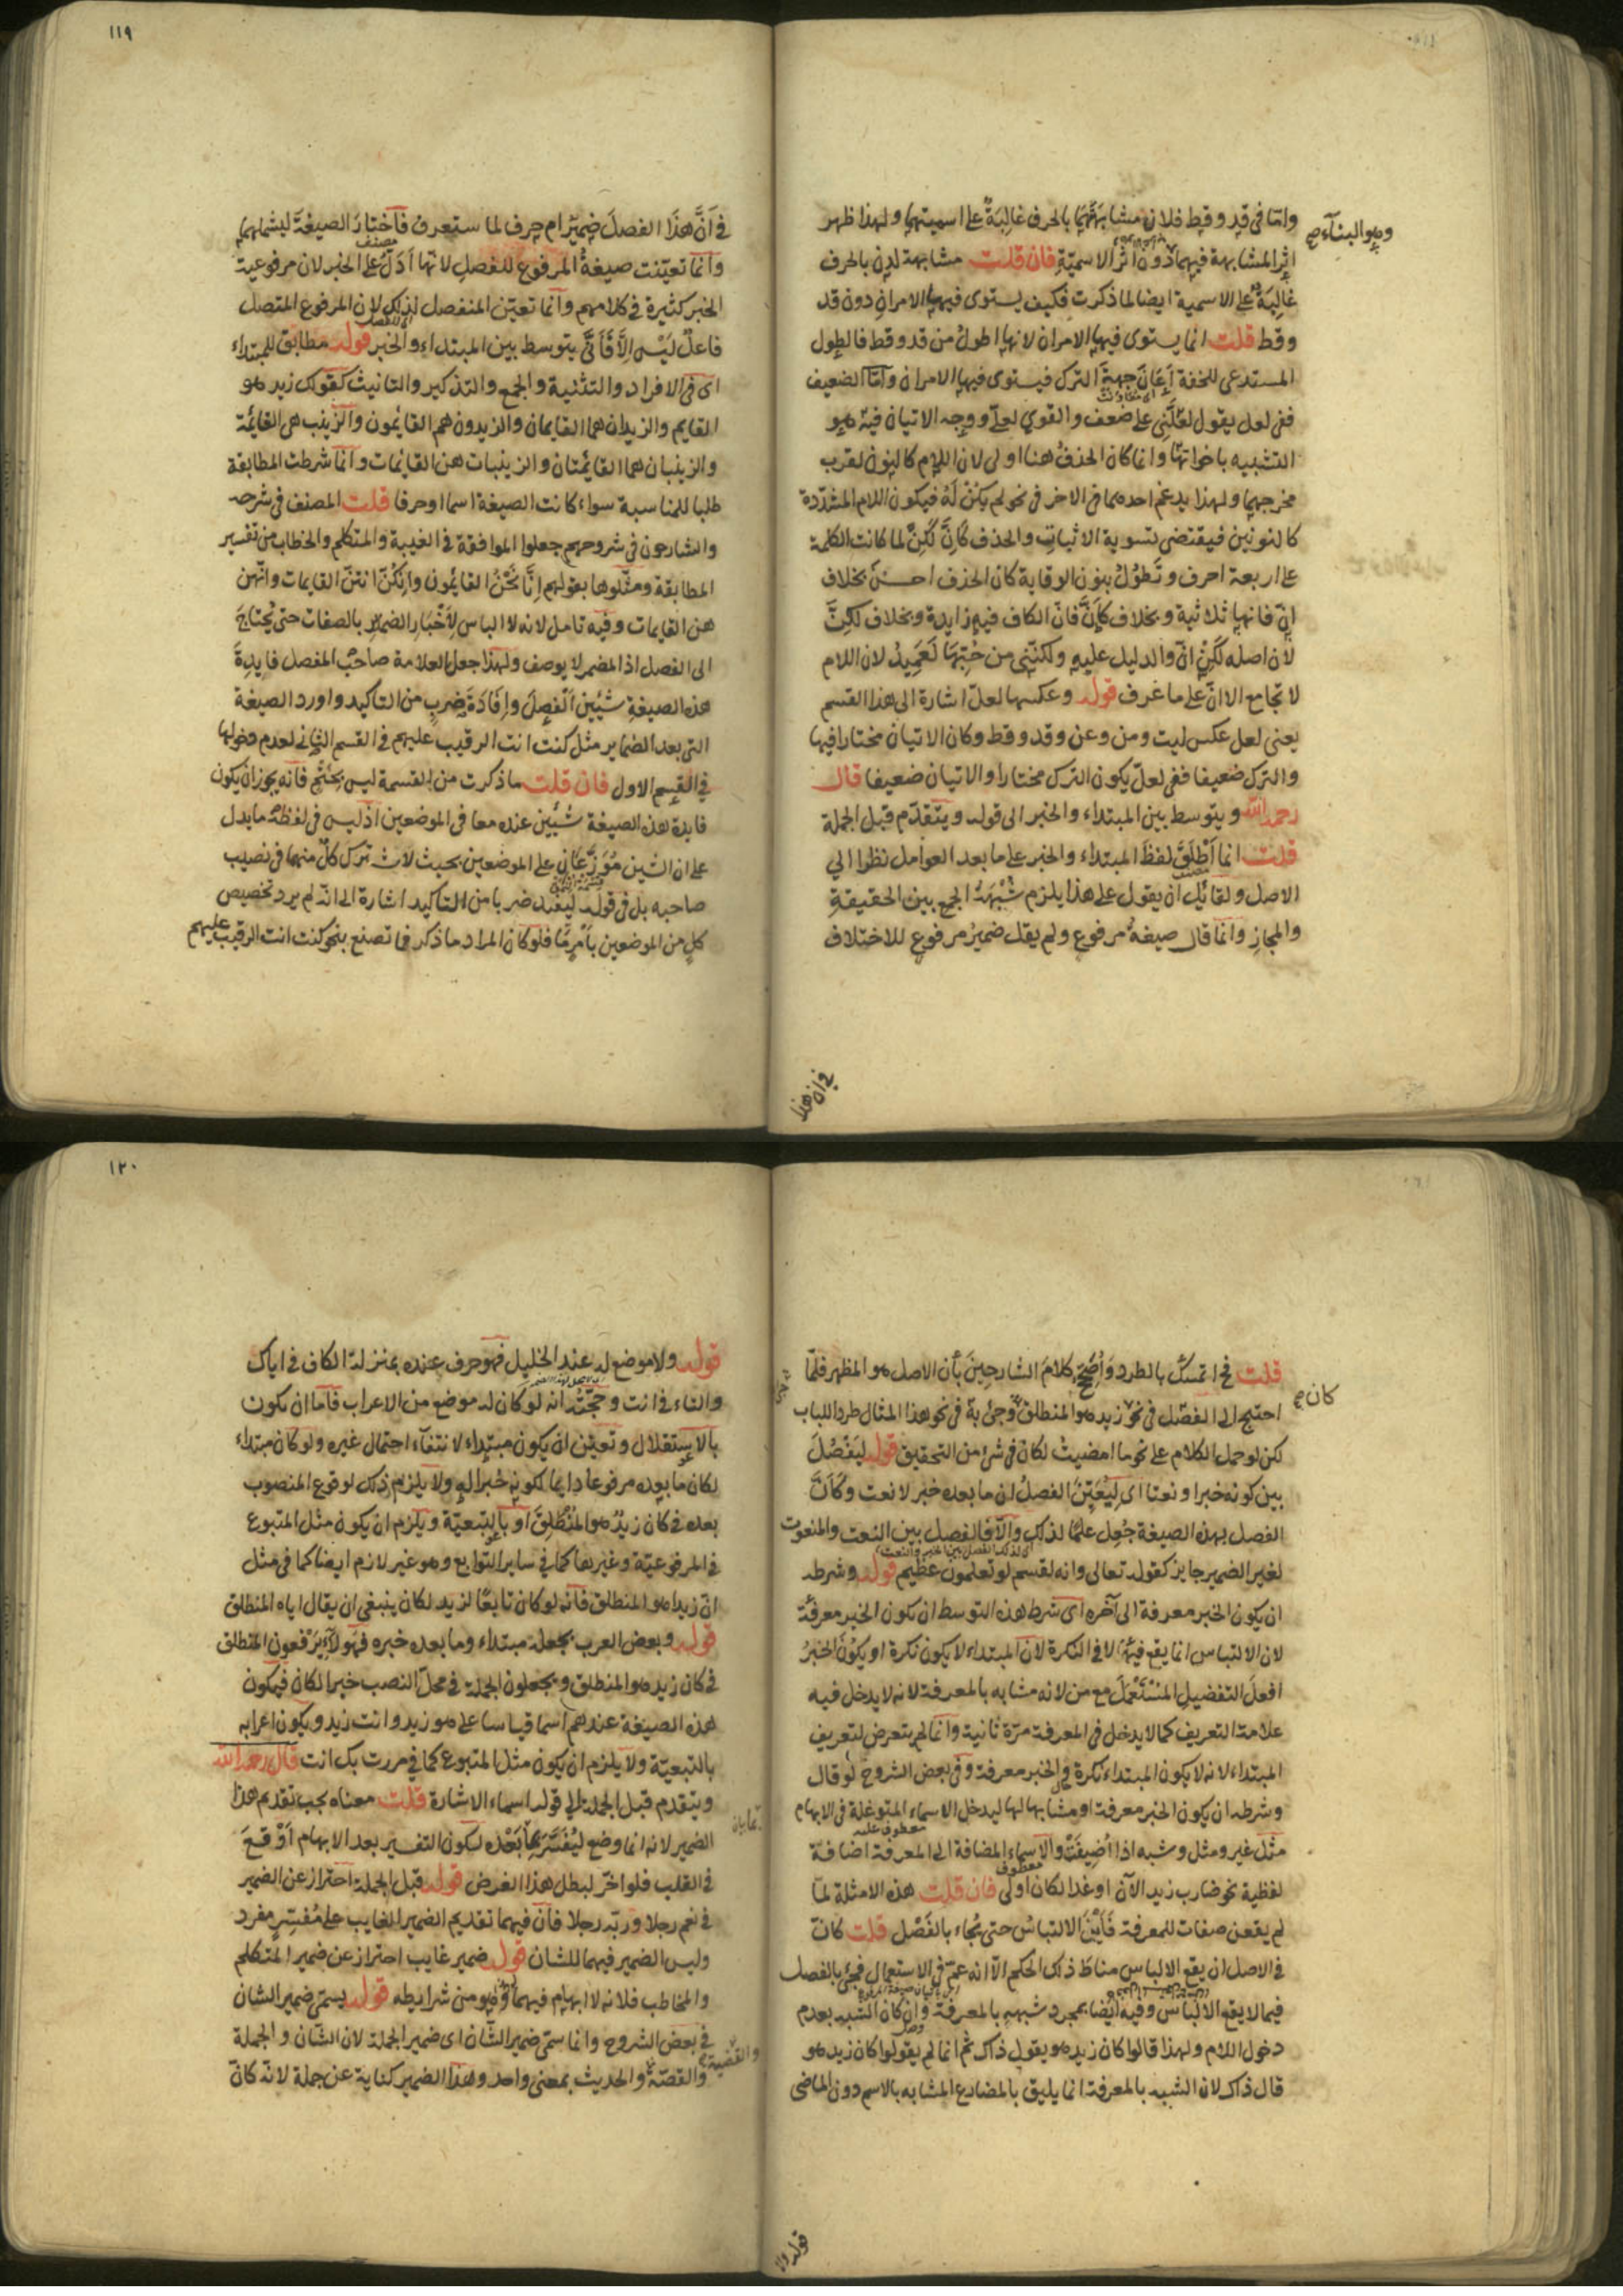 واما في قد وقط فلان مشابهتهما بالحرف غالبة على اسميتهما ولهذا ظهر
وهو البناء صح
اثر المشابهة فيهما دون اثر الاسمية فان قلت مشابهة لدن بالحرف
غالبة على الاسمية ايضا لما ذكرت فكيف يستوى فيها الامران دون قد
وقط قلت انما يستوى فيها الامران لانها اطول من قد وقط فالطول
المستدعى للخفة اعان جهة الترك فيستوى فيها الامران واما الضعيف
ففى لعل يقول لعلنى على ضعف والقوى لعلى ووجه الاتيان فيه هو
التشبيه باخواتها وانما كان الحذف هنا اولى لان اللام كالنون لقرب
مخرجهما ولهذا يدغم احدهما فى الاخر فى نحو لم يكن له فيكون اللام المشددة
كالنونين فيقتضى تسوية الاثبات والحذف كان لكن لما كانت الكلمة
على اربعة احرف وتطول بنون الوقاية كان الحذف احسن بخلاف
ان فانها ثلاثية وبخلاف كان فان الكاف فيه زايدة وبخلاف لكن
لان اصله لكن ان والدليل عليه ولكننى من حبها لعميد لان اللام
لا تجامع الا ان على ما عرف قوله وعكسها لعل اشارة الى هذا القسم
يعنى لعل عكس ليت ومن وعن وقد وقط وكان الاتيان مختارا فيها
والترك ضعيفا ففى لعل يكون الترك مختارا والاتيان ضعيفا قال
رحمه الله ويتوسط بين المبتداء والخبر الى قوله ويتقدم قبل الجملة
قلت انما اطلق لفظ المبتداء والخبر على ما بعد العوامل نظرا الي
الاصل ولقائل ان يقول على هذا يلزم شبهة الجمع بين الحقيقة
والمجاز وانما قال صيغة مرفوع ولم يقل ضمير مرفوع للاختلاف
في ان هذا
١١٩
في ان هذا الفصل ضمير ام حرف لما ستعرف فاختار الصيغة ليشملهما
مصنف
وانما تعينت صيغة المرفوع للفصل لانها ادل على الخبر لان مرفوعية
الخبر كثيرة فى كلامهم وانما تعين المنفصل لذلك لان المرفوع المتصل
فاعل ليس الا فانى يتوسط بين المبتداء والخبر قوله مطابق للمبتداء
اى فى الافراد والتثنية والجمع والتذكير والتانيث كقولك زيد هو
القايم والزيدان هما القايمان والزيدون هم القايمون والزينب هى القايمة
والزينبان هما القايمتان والزينبات هن القايمات وانما شرطت المطابقة
طلبا للمناسبة سواء كانت الصيغة اسما او حرفا قلت المصنف فى شرحه
والشارحون فى شروحهم جعلوا الموافقة فى الغيبة والمتكلم والخطاب من تفسير
المطابقة ومثلوها بقولهم انا نحن القايمون وانكن انتن القايمات وانهن
هن القايمات وفيه تامل لانه لا الباس لاخبار الضماير بالصفات حتى يحتاج
الى الفصل اذ المضمر لا يوصف ولهذا جعل العلامة صاحب المفصل فايدة
هذه الصيغة شيئين الفصل وافادة ضرب من التاكيد واورد الصيغة
التى بعد الضماير مثل كنت انت الرقيب عليهم فى القسم الثانى لعدم دخولها
في القسم الاول فان قلت ما ذكرت من القسمة ليس بحتم فانه يجوز ان يكون
فايدة هذه الصيغة شيئين عنده معا فى الموضعين اذ ليس فى لفظه ما يدل
على ان الشيئين موزعان على الموضعين بحيث لا يشترك كل منهما فى نصيب
صاحبه بل فى قوله ليفيد ضربا من التاكيد اشارة الى انه لم يرد تخصيص
كل من الموضعين بامر ما فلو كان المراد ما ذكر فما تصنع بنحو كنت انت الرقيب عليهم
قلت نحن نتمسك بالطرد واصحح كلام الشارحين بان الاصل هو المظهر فلما
كان صح
احتيج الى الفصل فى نحو زيد هو المنطلق وجئ به فى نحو هذا المثال طردا للباب
لكن لو حمل الكلام على نحو ما امضيت لكان فى شئ من التحقيق قوله ليفصل
بين كونه خبرا او نعتا اى ليعين الفصل ان ما بعده خبر لا نعت وكان
الفصل بهذه الصيغة جعل علما لذلك والا فالفصل بين النعت والمنعوت
لغير الضمير جايز كقوله تعالى وانه لقسم لو تعلمون عظيم قوله وشرطه
ان يكون الخبر معرفة الى آخره اى شرط هذه التوسط ان يكون الخبر معرفة
لان الالتباس انما يقع فيها لا فى النكرة لان المبتداء لا يكون نكرة او يكون الخبر
افعل التفضيل المستعمل مع من لانه مشابه بالمعرفة لانه لا يدخل فيه
علامة التعريف كما لا يدخل فى المعرفة مرة ثانية وانما لم يتعرض لتعريف
المبتداء لانه لا يكون المبتداء نكرة فى الخبر معرفة وفى بعض الشروح لو قال
وشرطه ان يكون الخبر معرفة او مشابها لها ليدخل الاسماء المتوغلة فى الابهام
مثل غير ومثل وشبه اذا اضيفت والاسماء المضافة الى المعرفة اضافة
لفظية نحو ضارب زيد الآن او غدا لكان اولى فان قلت هذه الامثلة لما
لم يقعن صفات للمعرفة فاين الالتباس حتى يجاء بالفصل قلت كان
فى الاصل ان يقع الالباس مناط ذلك الحكم الا انه عم فى الاستعمال فجئ بالفصل
فيما لا يقع الالباس وفيه ايضا بمجرد شبهه بالمعرفة وان كان الشبه بعدم
دخول اللام ولهذا قالوا كان زيد هو يقول ذاك ثم انما لم يقولوا كان زيد هو
قال ذاك لان الشبه بالمعرفة انما يليق بالمضارع المشابه بالاسم دون الماضى
قوله ولا
١٢٠
قوله ولا موضع له عند الخليل فهو حرف عنده بمنزلة الكاف فى اياك
والتاء فى انت وحجته انه لو كان له موضع من الاعراب فاما ان يكون
بالاستقلال وتعين ان يكون مبتداء لانتفاء احتمال غيره ولو كان مبتداء
لكان ما بعده مرفوعا دايما لكونه خبرا له ولا يلزم ذلك لوقوع المنصوب
بعده فى كان زيد هو المنطلق او بالتبعية ويلزم ان يكون مثل المتبوع
فى المرفوعية وغيرها كما في ساير التوابع وهو غير لازم ايضا كما فى مثل
ان زيدا هو المنطلق فانه لو كان تابعا لزيد لكان ينبغى ان يقال اياه المنطلق
قوله وبعض العرب يجعله مبتداء وما بعده خبره فهولاء يرفعون المنطلق
فى كان زيد هو المنطلق ويجعلون الجملة فى محل النصب خبرا لكان فيكون
هذه الصيغة عندهم اسما قياسا على هو زيد وانت زيد ويكون اعرابه
بالتبعية ولا يلزم ان يكون مثل المتبوع كما في مررت بك انت قال رحمه الله
ويتقدم قبل الجملة الى قوله اسماء الاشارة قلت معناه يجب تقديم هذا
الضمير لانه انما وضع ليفسر بما بعده لكون التفسير بعد الابهام اوقع
فى القلب فلو اخر لبطل هذا الغرض قوله قبل الجملة احتراز عن الضمير
فى نعم رجلا وربه رجلا فان فيهما تقديم الضمير الغايب على مفسر مفرد
وليس الضمير فيهما للشان قوله ضمير غايب احتراز عن ضمير المتكلم
والمخاطب فلانه لا ابهام فيهما وهو من شرايطه قوله يسمى ضمير الشان
فى بعض الشروح وانما سمى ضمير الشان اى ضمير الجملة لان الشان والجملة
والقضية
والقصة والحديث بمعنى واحد وهذا الضمير كناية عن جملة لانه كان